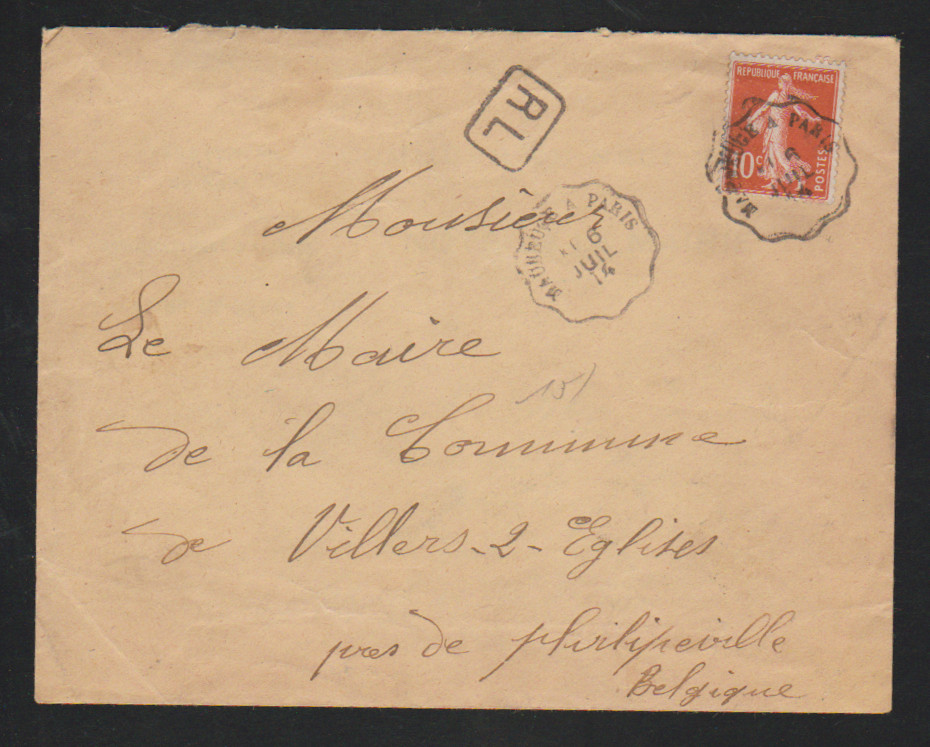 RL
REPUBLIQUE FRANÇAISE
10c POSTES
MAUBEUGE A PARIS
6
JUIL
14
MAUBEUGE A PARIS
6
JUIL
14
Monsieur
Le Maire
de la Commune
de Villers-2-Eglises
pres de philipeville
Belgique